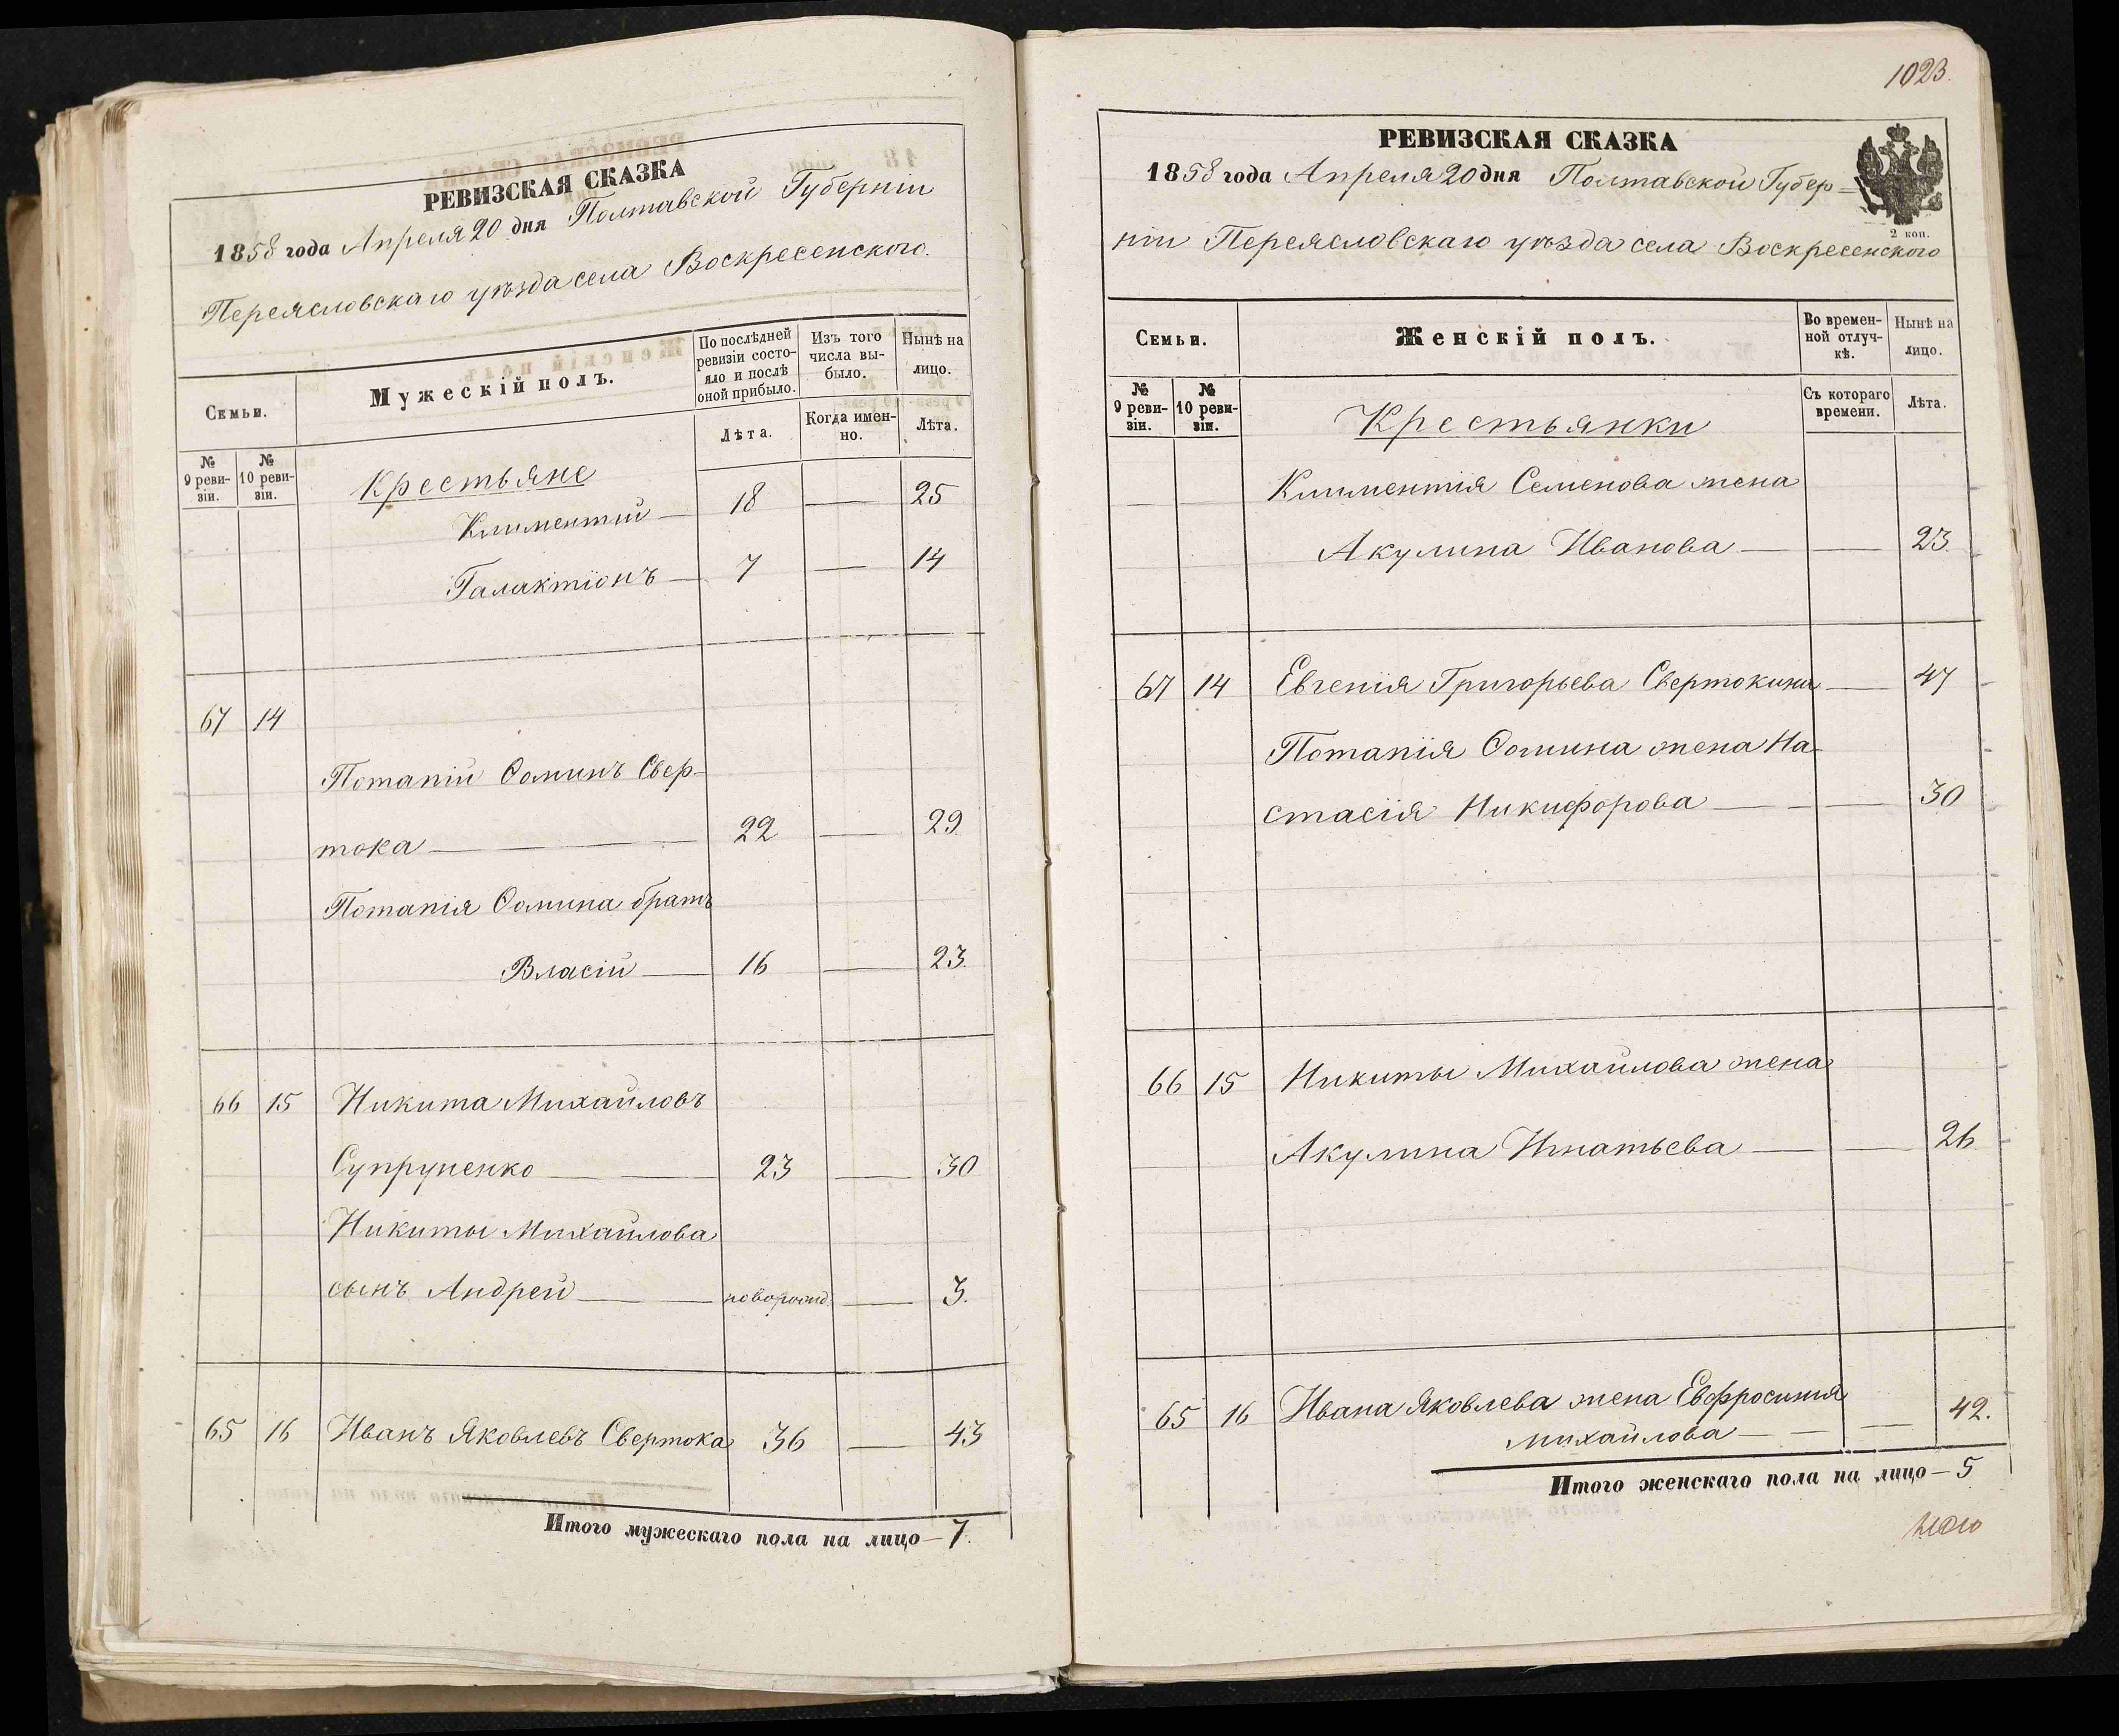 РЕВИЗСКАЯ СКАЗКА
1858 года Апреля 20 дня Полтавской Губерніи
Переясловскаго уѣзда села Воскресенского.
Семьи.
Мужескій полъ.
По послѣдней ревизіи состояло и послѣ оной прибыло.
Изъ того числа выбыло.
Нынѣ на лицо.
№ 9 ревизіи.
№ 10 ревизіи.
Лѣта.
Когда именно.
Лѣта.
Крестьяне
Климентий — 18 — 25
Галактіонъ — 7 — 14
67 14
Потапій Ѳоминъ Свер-
тока — 22 — 29
Потапія Ѳомина братъ
Власій — 16 — 23.
66 15 Никита Михайловъ
Супруненко — 23 — 30
Никиты Михайлова
сынъ Андрей — новорожд. — 3.
65 16 Иванъ Яковлевъ Свертока 36 — 43
Итого мужескаго пола на лицо — 7.
1023.
РЕВИЗСКАЯ СКАЗКА
1858 года Апреля 20 дня Полтавской Губер=
ніи Переясловскаго уѣзда села Воскресенского
2 коп.
Семьи.
Женскій полъ.
Во временной отлучкѣ.
Нынѣ на лицо.
№ 9 ревизіи.
№ 10 ревизіи.
Съ котораго времени.
Лѣта.
Крестьянки
Климентія Семенова жена
Акулина Иванова — — 23.
67 14 Евгенія Григорьева Свертокина — 47
Потапія Ѳомина жена На-
стасія Никифорова — — 30
66 15 Никиты Михайлова жена
Акулина Игнатьева — — 26
65 16 Ивана Яковлева жена Евфросинія
Михайлова — — — 42.
Итого женскаго пола на лицо — 5